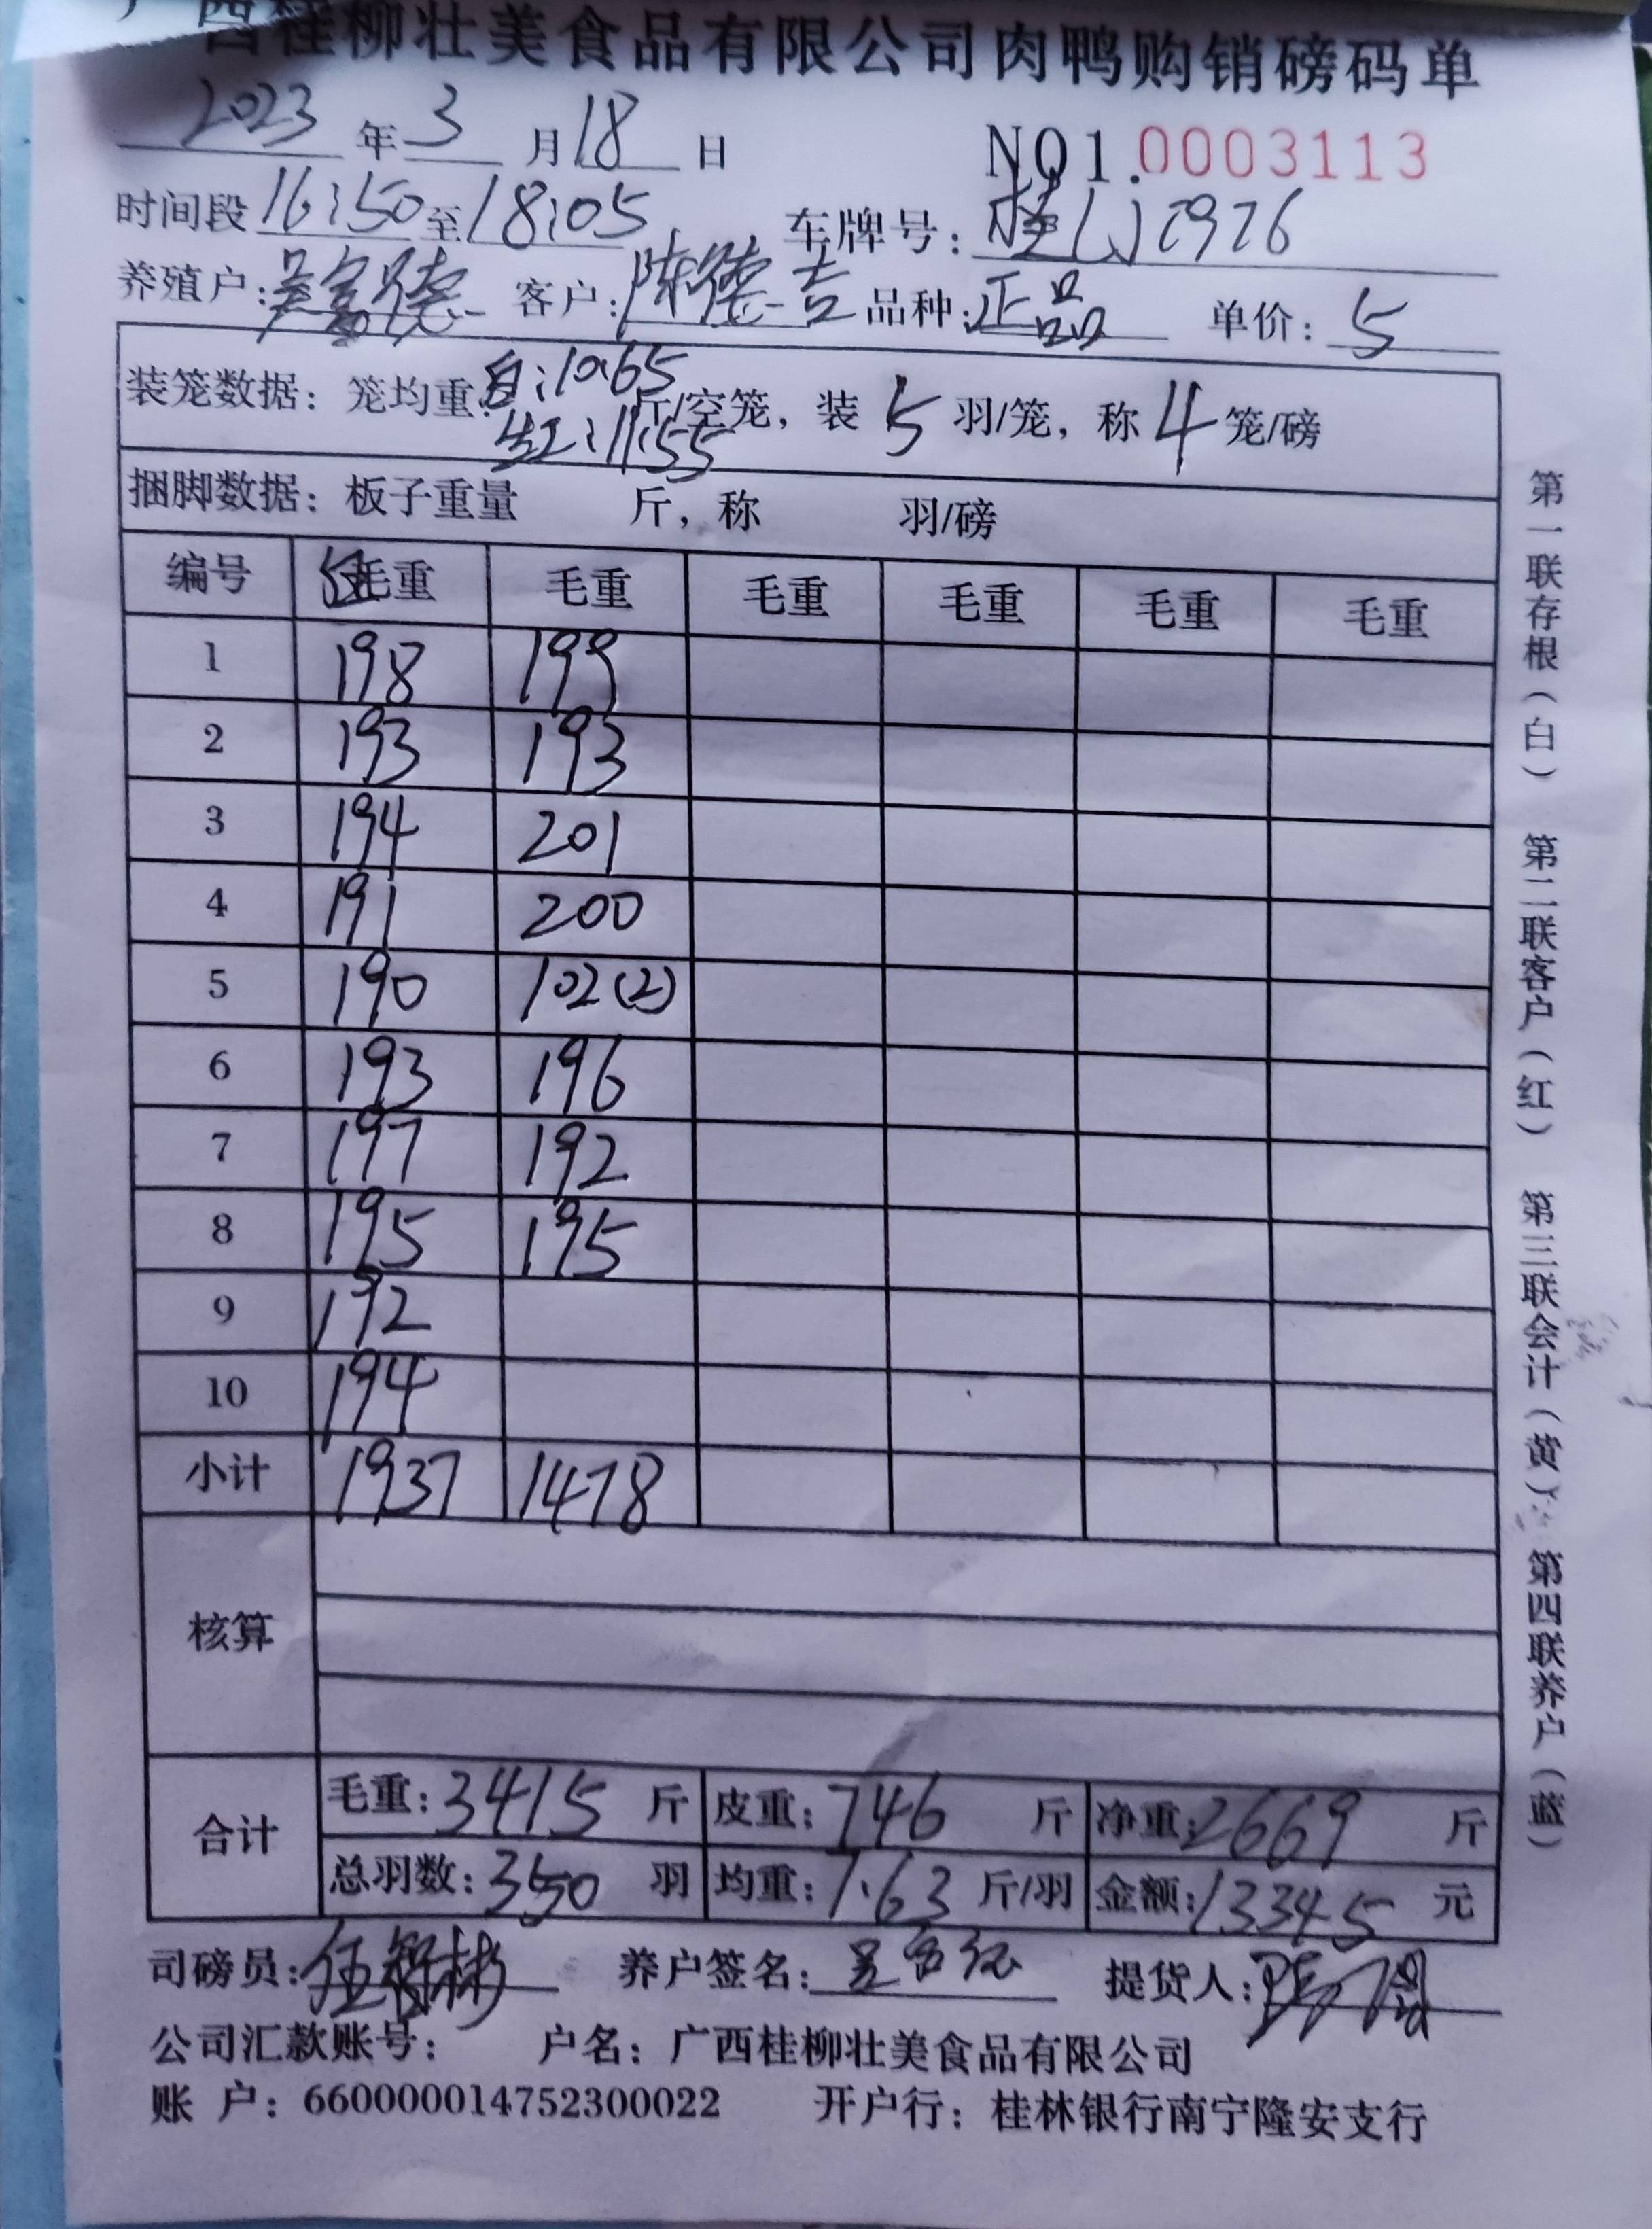 广西桂柳壮美食品有限公司肉鸭购销磅码单
2023年3月18日 NO1.0003113
时间段16:50至18:05 车牌号:桂
养殖户: 客户:陈德吉 品种:正品 单价:5
装笼数据:笼均重:白:10.65 红:11.55斤/空笼,装5羽/笼,称4笼/磅
捆脚数据:板子重量 斤,称 羽/磅
编号 毛重 毛重 毛重 毛重 毛重 毛重
1 198 199
2 193 193
3 194 201
4 191 200
5 190 102(2)
6 193 196
7 197 192
8 195 195
9 192
10 194
小计 1937 1478
核算
合计 毛重:3415斤 皮重:746斤 净重:2669斤
总羽数:350羽 均重:7.63斤/羽 金额:13345元
司磅员: 养户签名: 提货人:
公司汇款账号: 户名:广西桂柳壮美食品有限公司
账 户:660000014752300022 开户行:桂林银行南宁隆安支行
第一联存根(白) 第二联客户(红) 第三联会计(黄) 第四联养户(蓝)